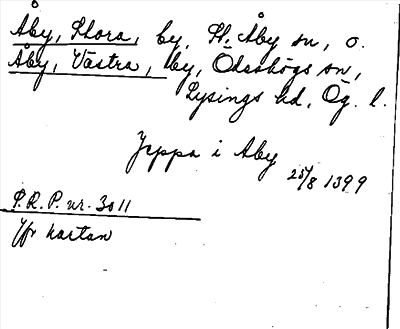 Åby, Stora, by, St. Åby sn, o.
Åby, Västra, by, Ödeshögs sn,
Lysings hd, Ög. l.
Jeppa i Aby
25/8 1399
P.R.P. nr. 3011
Jfr kartan